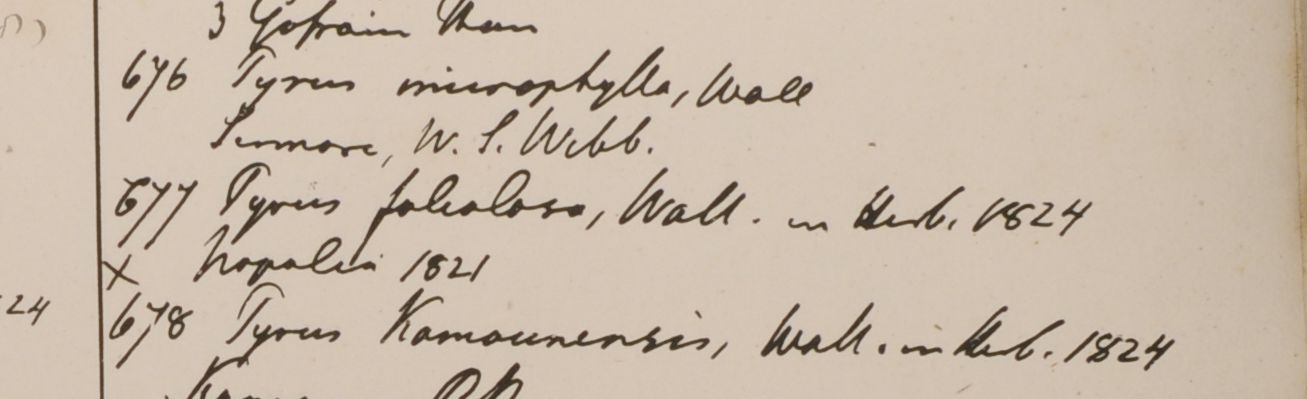 3 Gossain Than
676 Pyrus microphylla, Wall
Sirmore, W. S. Webb.
677 Pyrus foliolosa, Wall. in Herb. 1824
x Napalia 1821
24
678 Pyrus Kamaunensis, Wall. in Herb. 1824